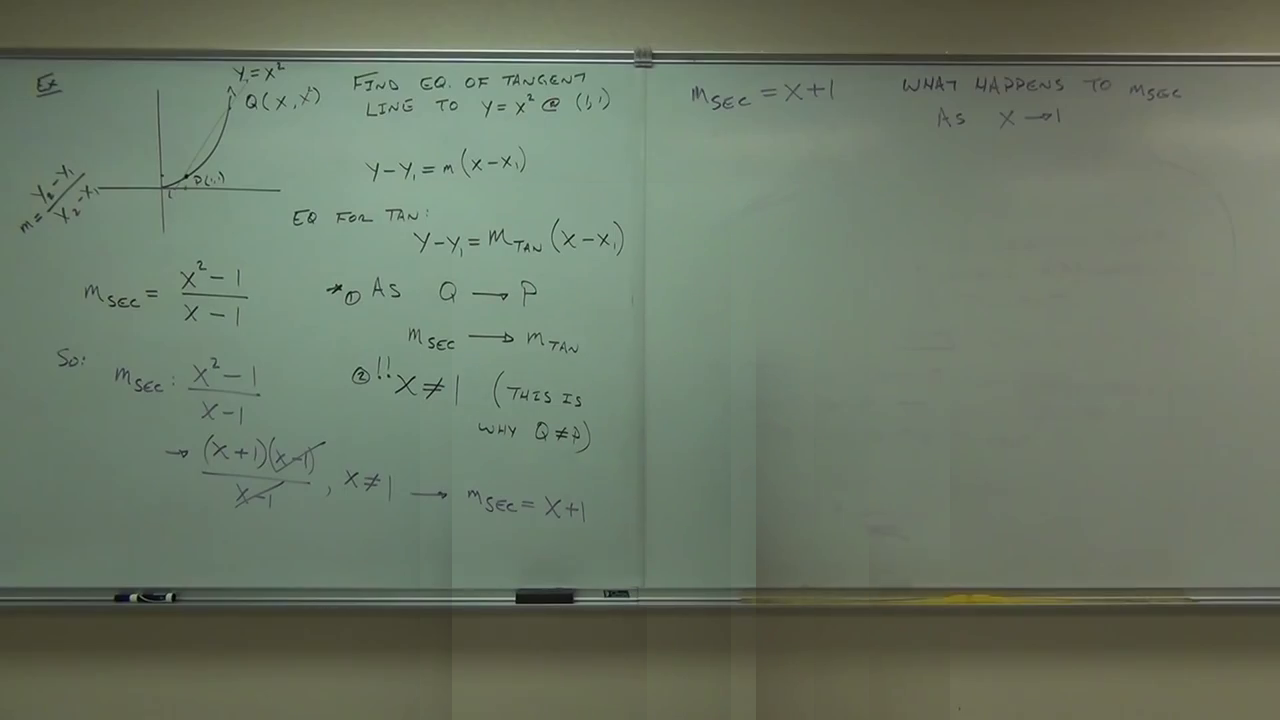 Ex
Y=X²
Q(X,X²)
P(1,1)
1
m=Y₂-Y₁/X₂-X₁
FIND EQ. OF TANGENT
LINE TO Y=X² @ (1,1)
Y-Y₁=m(X-X₁)
EQ FOR TAN:
Y-Y₁=M_TAN(X-X₁)
M_SEC = X²-1/X-1
* ① AS Q → P
M_SEC → M_TAN
So:
M_SEC: X²-1/X-1
② !! X≠1 (THIS IS
WHY Q≠P)
→ (X+1)(X-1)/X-1 , X≠1 → M_SEC = X+1
M_SEC = X+1
WHAT HAPPENS TO M_SEC
AS X→1